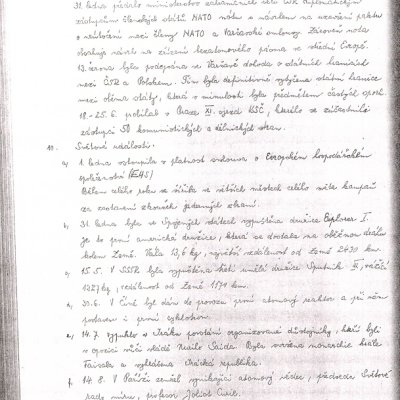 31. ledna předalo ministerstvo zahraničních věcí ČSR diplomatickým
zástupcům členských států NATO nótu s návrhem na uzavření paktu
o neútočení mezi členy NATO a Varšavské smlouvy. Zároveň nóta
obsahuje návrh na zřízení bezatomového pásma ve střední Evropě.
13. června byla podepsána ve Varšavě dohoda o státních hranicích
mezi ČSR a Polskem. Tím byla definitivně vytyčena státní hranice
mezi oběma státy, která v minulosti byla předmětem častých sporů.
18.-25.6. probíhal v Praze XI. sjezd KSČ, kterého se zúčastnili
zástupci 50 komunistických a dělnických stran.
10. Světové události.
a, 1. ledna vstoupila v platnost smlouva o Evropském hospodářském
společenství (EHS)
Během celého roku se v mnoha městech celého světa kampaň
za zastavení zkoušek jaderných zbraní.
b, 31. ledna byla ve Spojených státech vypuštěna družice Explorer I.
Je to první americká družice, která se dostala na oběžnou dráhu
kolem Země. Váha 13,6 kg, největší vzdálenost od Země 2430 km.
c, 15.5. V SSSR byla vypuštěna třetí umělá družice Sputnik III, vážící
1327 kg, vzdálenost od Země 1171 km.
d, 30.6. V Číně byl dán do provozu první atomový reaktor a její
první cyklotron.
e, 14.7. vypuklo v Iráku povstání organizované důstojníky, kteří byli
v opozici vůči vládě Nuriho Saida. Byla svržena monarchie krále
Faisala a vyhlášena Irácká republika.
f, 14.8. V Paříži zemřel vynikající atomový vědec, předseda Světové
rady míru, profesor Joliot Curie.